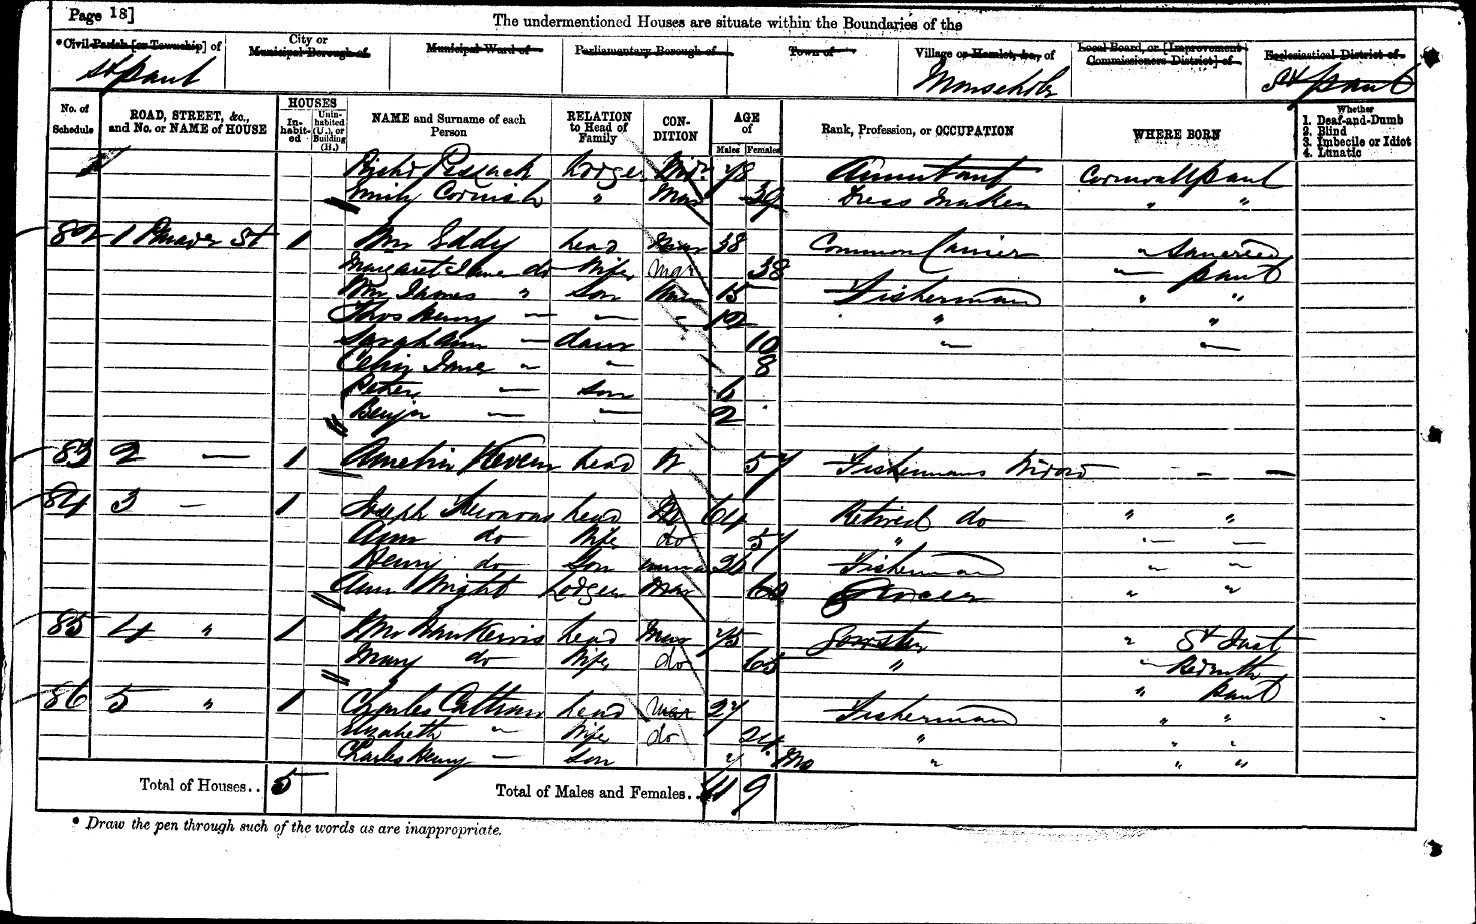 Page 18]
The undermentioned Houses are situate within the Boundaries of the
*Civil Parish [or Township] of
City or Municipal Borough of
Municipal Ward of
Parliamentary Borough of
Town of
Village or Hamlet, &c., of
Local Board, or [Improvement Commissioners District] of
Ecclesiastical District of
St Paul
St Paul
No. of Schedule
ROAD, STREET, &c., and No. or NAME of HOUSE
HOUSES
In-habit-ed
Unin-habited (U.), or Building (B.)
NAME and Surname of each Person
RELATION to Head of Family
CON-DITION
AGE of
Males
Females
Rank, Profession, or OCCUPATION
WHERE BORN
Whether
1. Deaf-and-Dumb
2. Blind
3. Imbecile or Idiot
4. Lunatic
Lodger 78 Annuitant Cornwall Paul
Emily Cornish " Mar 39 Dress Maker " "
82 1 St 1 Wm Eddy head Mar 38 Common Carrier " Sancreed
Margaret Jane do Wife Mar 38 " Paul
Wm James " Son 15 Fisherman " "
Thos Henry — — " 12 " "
Sarah Ann — daur 10 " —
Jane " " 8
Peter — son 6
Benjn — — 2
83 2 — 1 Amelia head W 57 Fishermans Widow - —
84 3 — 1 Joseph head M 64 Retired do " "
Ann do Wife do 57 " — —
Henry do Son Fisherman " "
Ann Wright Lodger Mar Grocer " "
85 4 " 1 head Mar 75 " St Just
Mary do Wife do 65 " " Redruth
" Paul
86 5 " 1 Charles head Mar 27 Fisherman " "
Elizabeth " Wife do 24 " " "
Charles Henry — son 7 Mo " " "
Total of Houses.. 5
Total of Males and Females.. 11 9
* Draw the pen through such of the words as are inappropriate.